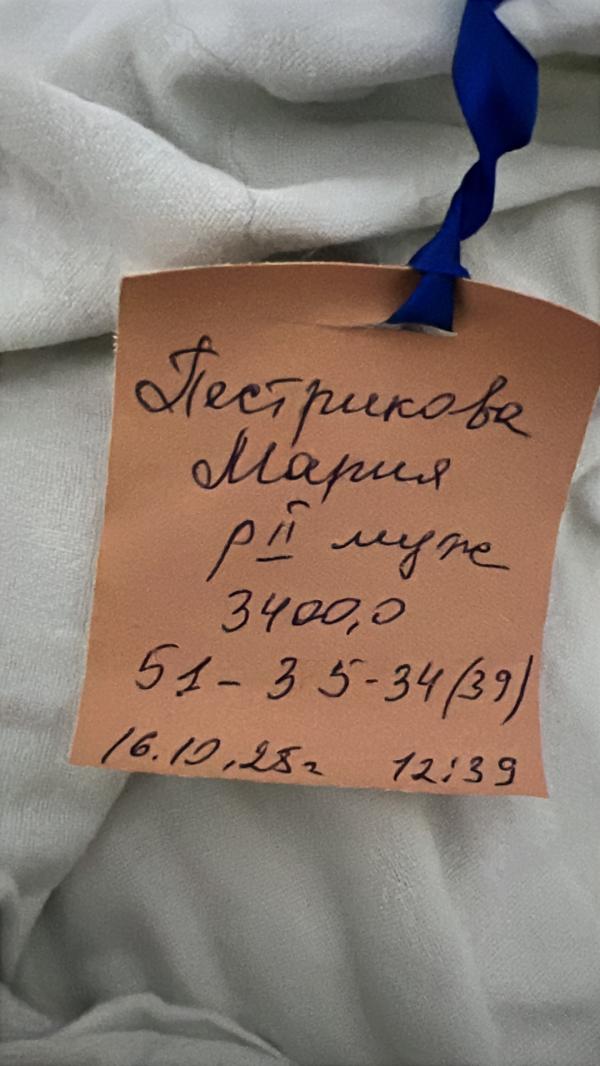 Пестрикова
Мария
р II муж
3400,0
51-35-34(39)
16.10.25г 12:39